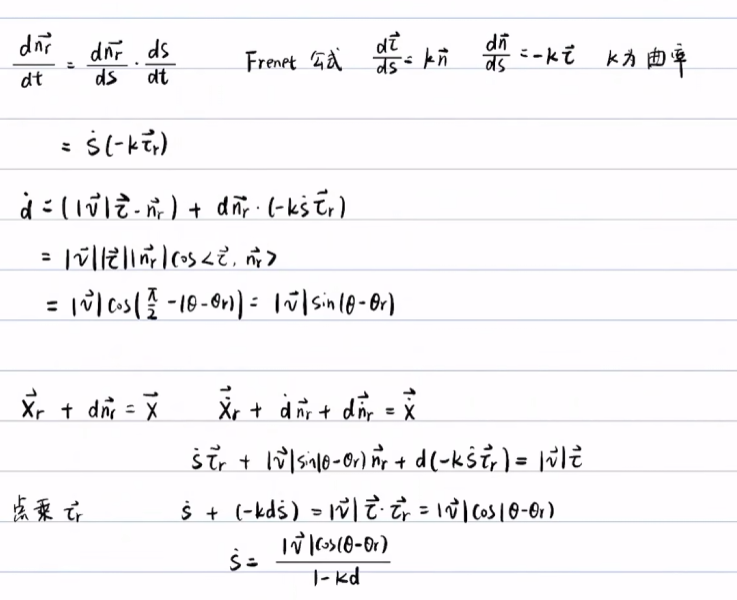 dn⃗r/dt = dn⃗r/ds · ds/dt    Frenet 公式  dτ⃗/ds = kn⃗  dn⃗/ds = -kτ⃗  k为曲率
= ṡ(-kτ⃗r)
ḋ = (|v⃗|τ⃗·n⃗r) + dn⃗r·(-kṡτ⃗r)
= |v⃗||τ⃗||n⃗r|cos<τ⃗, n⃗r>
= |v⃗|cos(π/2 -(θ-θr)) = |v⃗|sin(θ-θr)
x⃗r + dn⃗r = x⃗    ẋ⃗r + ḋn⃗r + dṅ⃗r = ẋ⃗
ṡτ⃗r + |v⃗|sin(θ-θr)n⃗r + d(-kṡτ⃗r) = |v⃗|τ⃗
点乘 τ⃗r    ṡ + (-kdṡ) = |v⃗|τ⃗·τ⃗r = |v⃗|cos(θ-θr)
ṡ = |v⃗|cos(θ-θr)/1-kd